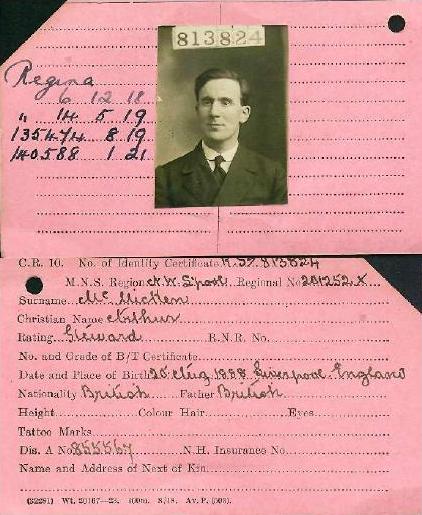 813824
Regina
6 12 18
" 14 5 19
135474 8 19
140588 1 21
C.R. 10. No. of Identity Certificate R.S2.813824
M.N.S. Region N.W. L'pool Regional No 201252.X
Surname Mc Micken
Christian Name Arthur
Rating Steward R.N.R. No.
No. and Grade of B/T Certificate
Date and Place of Birth 20 Aug 1888 Liverpool England
Nationality British Father British
Height Colour Hair Eyes
Tattoo Marks
Dis. A No 855567 N.H. Insurance No.
Name and Address of Next of Kin
(32281) Wt. 20167—23. 100m. 8/18. Av. P. (503).